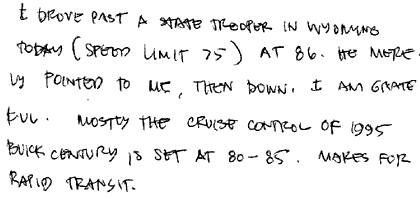 I DROVE PAST A STATE TROOPER IN WYOMING
TODAY (SPEED LIMIT 75) AT 86. HE MERE-
LY POINTED TO ME, THEN DOWN. I AM GRATE
FUL. MOSTLY THE CRUISE CONTROL OF 1995
BUICK CENTURY IS SET AT 80-85. MAKES FOR
RAPID TRANSIT.